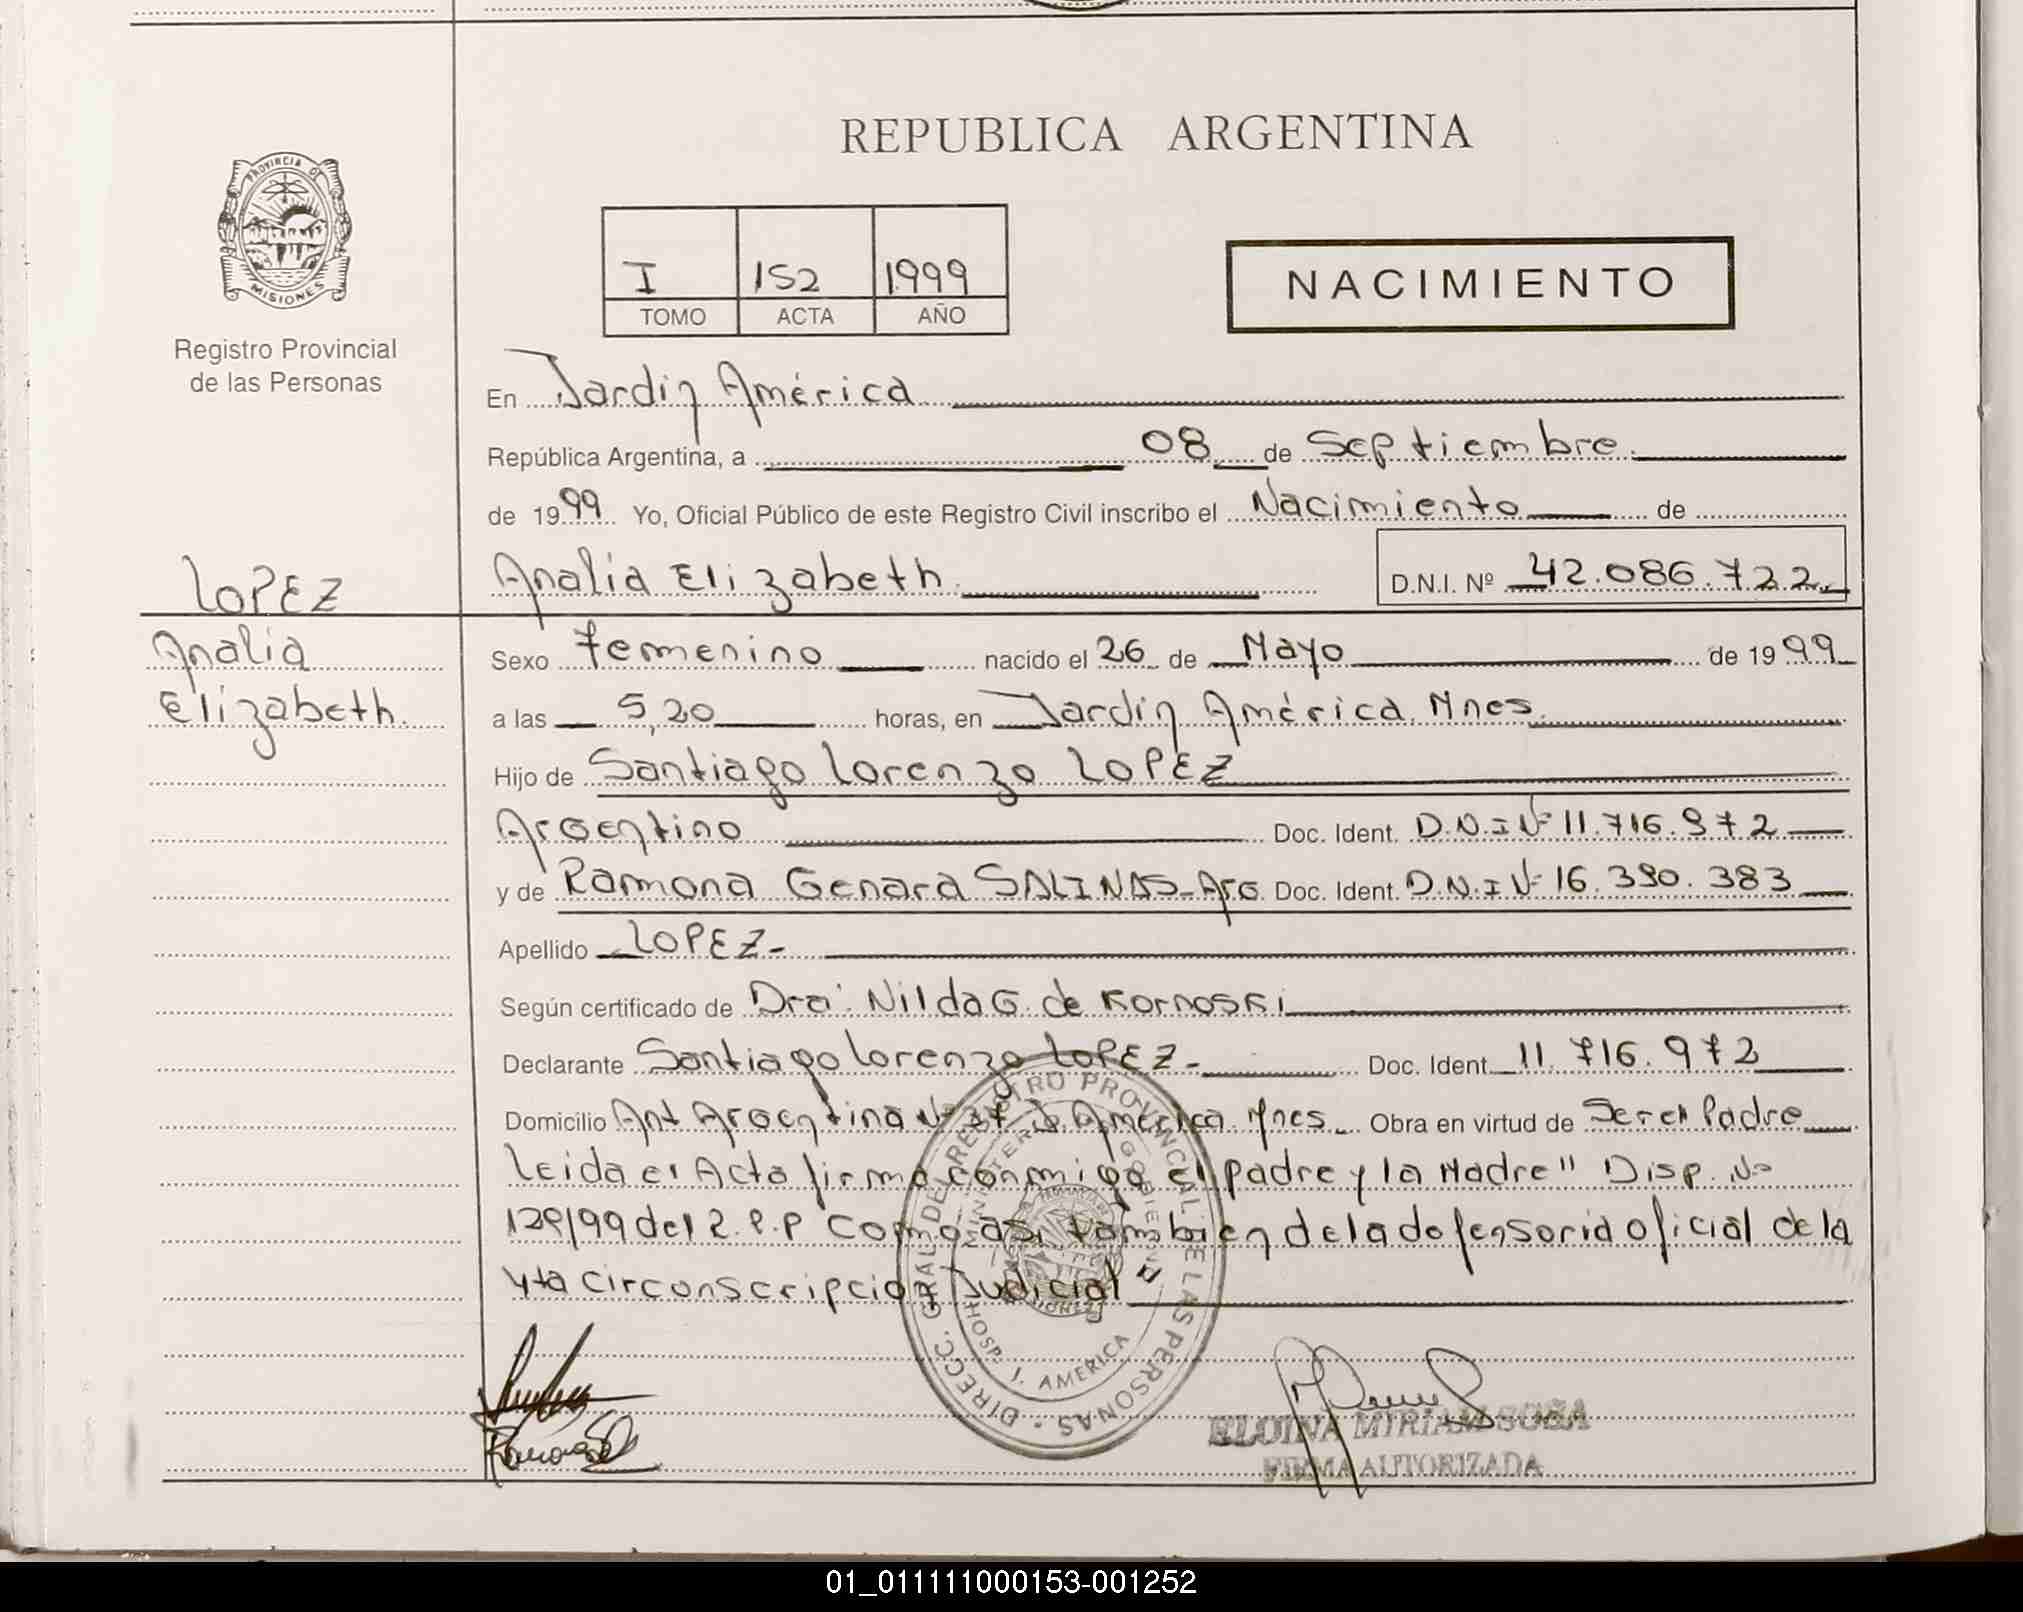 REPUBLICA ARGENTINA
PROVINCIA DE
MISIONES
Registro Provincial
de las Personas
I 152 1999
TOMO ACTA AÑO
NACIMIENTO
En Jardin América
República Argentina, a 08 de Septiembre
de 1999 Yo, Oficial Público de este Registro Civil inscribo el Nacimiento de
Analia Elizabeth. D.N.I. Nº 42.086.722
LOPEZ
Analia
Elizabeth.
Sexo Femenino nacido el 26 de Mayo de 1999
a las 5,20 horas, en Jardin América Mnes.
Hijo de Santiago Lorenzo LOPEZ
Argentino Doc. Ident. D.N.I Nº 11.716.972
y de Ramona Genara SALINAS-Arg. Doc. Ident. D.N.I Nº 16.390.383
Apellido LOPEZ-
Según certificado de Dra. Nilda G. de Kornoski
Declarante Santiago Lorenzo LOPEZ- Doc. Ident. 11.716.972
Domicilio Ant Argentina Nº 37 J. América Mnes. Obra en virtud de Ser el Padre
Leida el Acta firma conmigo el padre y la Madre" Disp. Nº
129/99 del R.P.P Como asi tambien de la defensoria oficial de la
4ta Circonscripcion Judicial"
DIRECC. GRAL. DEL REGISTRO PROVINCIAL DE LAS PERSONAS
MINISTERIO GOBIERNO
HOSP. J. AMERICA
ELOINA MIRIAM SOSA
FIRMA AUTORIZADA
01_011111000153-001252